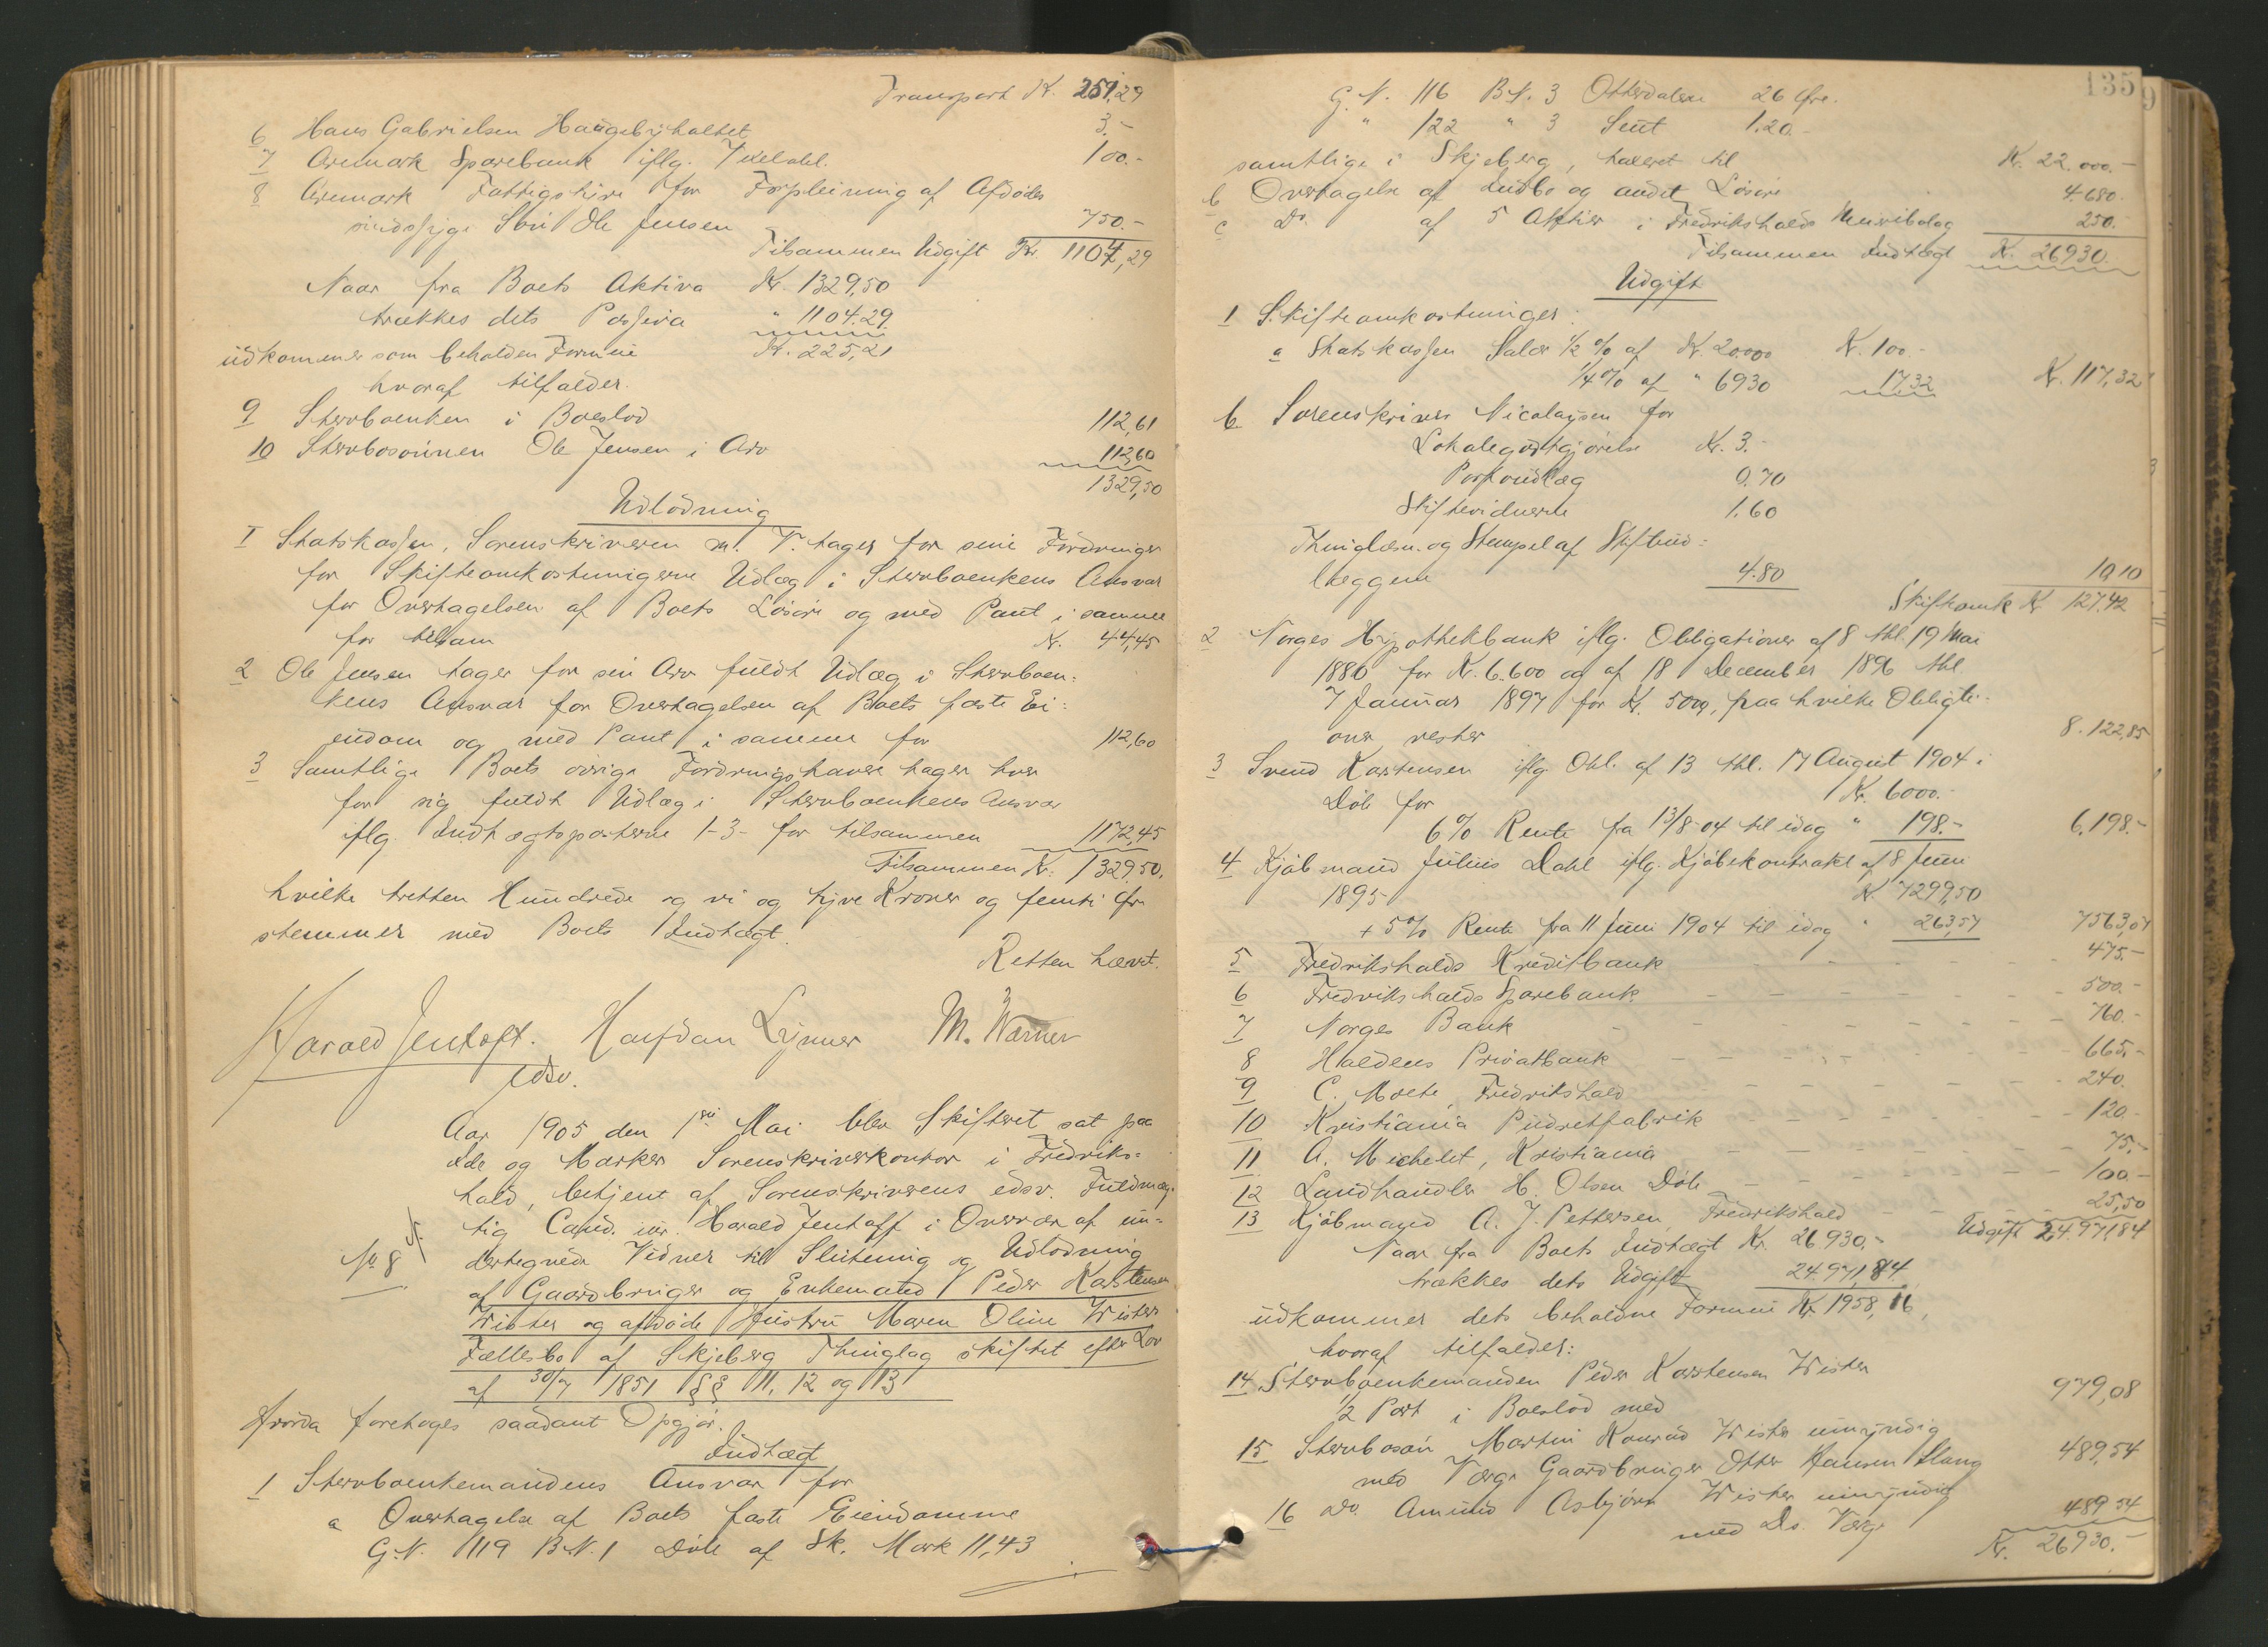 Transport Kr. 251,29
6 Hans Gabrielsen Haugebyhaltet 3.-
7 Aremark Sparebank iflg. Vexelobl. 100.-
8 Aremark Fattigstyre for Forpleining af Afdødes
sindssyge Søn Ole Jensen 750.-
Tilsammen Udgift Kr. 1104,29
Naar fra Boets Aktiva Kr. 1329,50
trækkes dets Passiva " 1104.29.
udkommer som beholden Formue Kr. 225,21
hvoraf tilfalder.
9 Stervboenken i Boeslod 112,61
10 Stervbosønnen Ole Jensen i Arv 112,60
1329,50
Udlodning
I Statskassen, Sorenskriveren m. V. tager for sine Fordringer
for Skifteomkostningerne Udlæg i Stervboenkens Ansvar
for Overtagelsen af Boets Løsøre og med Pant i samme
for tilsam Kr. 44,45
2 Ole Jensen tager for sin Arv fuldt Udlæg i Stervboen-
kens Ansvar for Overtagelsen af Boets faste Ei-
endom og med Pant i samme for 112,60
3 Samtlige Boets øvrige Fordringshavere tager hver
for sig fuldt Udlæg i Stervboenkens Ansvar
iflg. Indtægtsposterne 1-3- for tilsammen 1172,45
Tilsammen Kr. 1329.50.
hvilke tretten Hundrede og ni og tyve Kroner og femti Øre
stemmer med Boets Indtægt.
Retten hævet.
Harald Jentoft. Halfdan Lymer M. Warner
edsv.
Aar 1905 den 1ste Mai blev Skifteret sat paa
Ide og Marker Sorenskriverkontor i Fredriks-
hald, betjent af Sorenskriverens edsv. Fuldmæg-
tig Cand. jur. Harald Jentoft i Overvær af un-
dertegnede Vidner til Slutning og Udlodning
No 8/05.
af Gaardbruger og Enkemand Peder Karstensen
Wister og afdøde Hustru Maren Oline Wisters
Fællesbo af Skjeberg Thinglag skiftet efter Lov
af 30/7 1851 §§ 11, 12 og 13
Hvorda foretoges saadant Opgjør.
Indtægt
1 Stervboenkemandens Ansvar for
a Overtagelse af Boets faste Eiendomme
G.N. 119 B.N. 1 Døle af Sk. Mark 11,43
135
G.N. 116 B.N. 3 Otterdalen 26 Øre.
" 122 " 3 Sent 1.20.-
samtlige i Skjeberg, taxeret til Kr. 22.000.-
b Overtagelse af Indbo og andet Løsøre 4.680.
c Do. af 5 Aktier i Fredrikshalds Meieribolag 250.
Tilsammen Indtægt Kr. 26930.
Udgift
1 Skifteomkostninger:
a Statskassen Salær 1/2 % af Kr. 20.000 Kr. 100.-
1/4 % af " 6930 17,32 Kr. 117,32
b. Sorenskriver Nicolaysen for
Lokalegodtgjørelse Kr. 3.-
Portoudlæg 0.70
Skiftevidnerne 1.60
Thinglæsn. og Stempel af Skifteud-
læggene 4.80 10,10
Skifteomk Kr 127,42
2 Norges Hypothekbank iflg. Obligationer af 8 thl. 19 Mai
1880 for Kr. 6.600 og af 18 December 1896 thl.
7 Januar 1897 for Kr. 5000, paa hvilke Obligti-
oner rester 8.122,85
3 Svend Karstensen iflg. Obl. af 13 thl. 17 August 1904 i
Døle for Kr. 6000.-
6 % Rente fra 13/8-04 til idag " 198.- 6.198.-
4 Kjøbmand Julius Dahl iflg. Kjøbekontrakt af 8 Juni
1895 Kr. 7299,50
+ 5 % Rente fra 11 Juni 1904 til idag " 263,57 7563,07
5 Fredrikshalds Kreditbank 475.-
6 Fredrikshalds Sparebank 500.-
7 Norges Bank 760.-
8 Haldens Privatbank 665.-
9 C. Molte, Fredrikshald 240.
10 Kristiania Pudretfabrik 120.-
11 A. Michelet, Kristiania 75.-
12 Landhandler H. Olsen Døle 100.-
13 Kjøbmand A. J. Pettersen, Fredrikshald 25,50
Udgift 24.971,84
Naar fra Boets Indtægt Kr. 26930.-
trækkes dets Udgift 24.971,84
udkommer dets beholdne Formue Kr. 1958,16,
hvoraf tilfalder:
14 Stervboenkemanden Peder Karstensen Wister
1/2 Part i Boeslod med 979,08
15 Stervbosøn Martin Konrad Wister umyndig
med Værge Gaardbruger Otter Hansen Slang 489,54
16 Do. Amund Asbjørn Wister umyndig
med Do. Værge 489,54
Kr. 26930.-